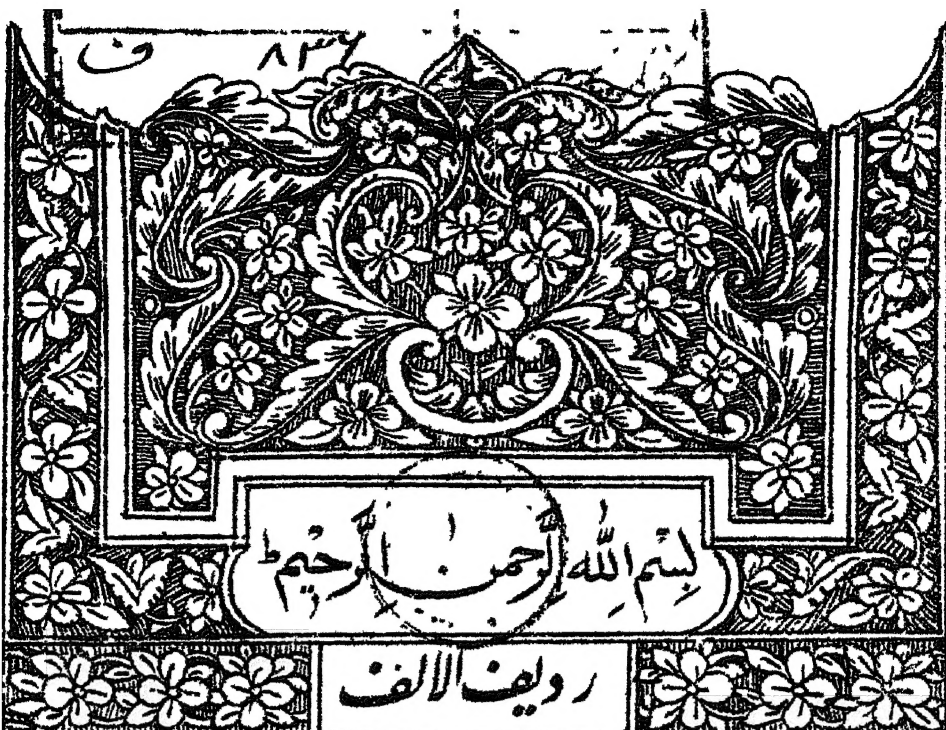 ف ۸۳۶
بِسْمِ اللهِ الرَّحْمٰنِ الرَّحِیْمِ ط
ردیف الالف